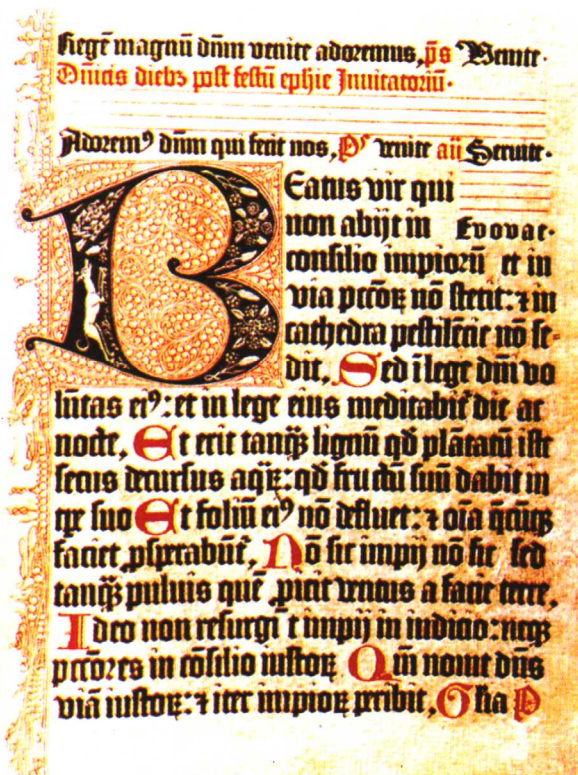 Regē magnū dñm venite adoremus, p̄s Venite.
Dñicis diebꝫ post festū ephie Inuitatoriū.
Adoremꝰ dñm qui fecit nos, Pˢ venite añ Seruite.
Beatus vir qui
non abijt in Evovae.
consilio impiorū et in
via pctōꝝ nō stetit: ⁊ in
cathedra pestilētie nō se-
dit, Sed ī lege dñi vo
lūtas eiꝰ: et in lege eius meditabit̄ die ac
nocte, Et erit tanqꝫ̄ lignū qd̄ plātatū est
secus decursus aqꝝ̄: qd̄ fructū suū dabit in
tꝑe suo Et foliū eiꝰ nō defluet: ⁊ oīa q̄cūqꝫ
faciet ꝓsperabūt̄, Nō sic impij nō sic sed
tanqꝫ̄ puluis quē ꝓicit ventus a facie terre,
Ideo non resurgūt impij in iudicio: neqꝫ
pctōres in cōsilio iustoꝝ Qm̄ nouit dñs
viā iustoꝝ: ⁊ iter impioꝝ peribit, Gl̄ia P